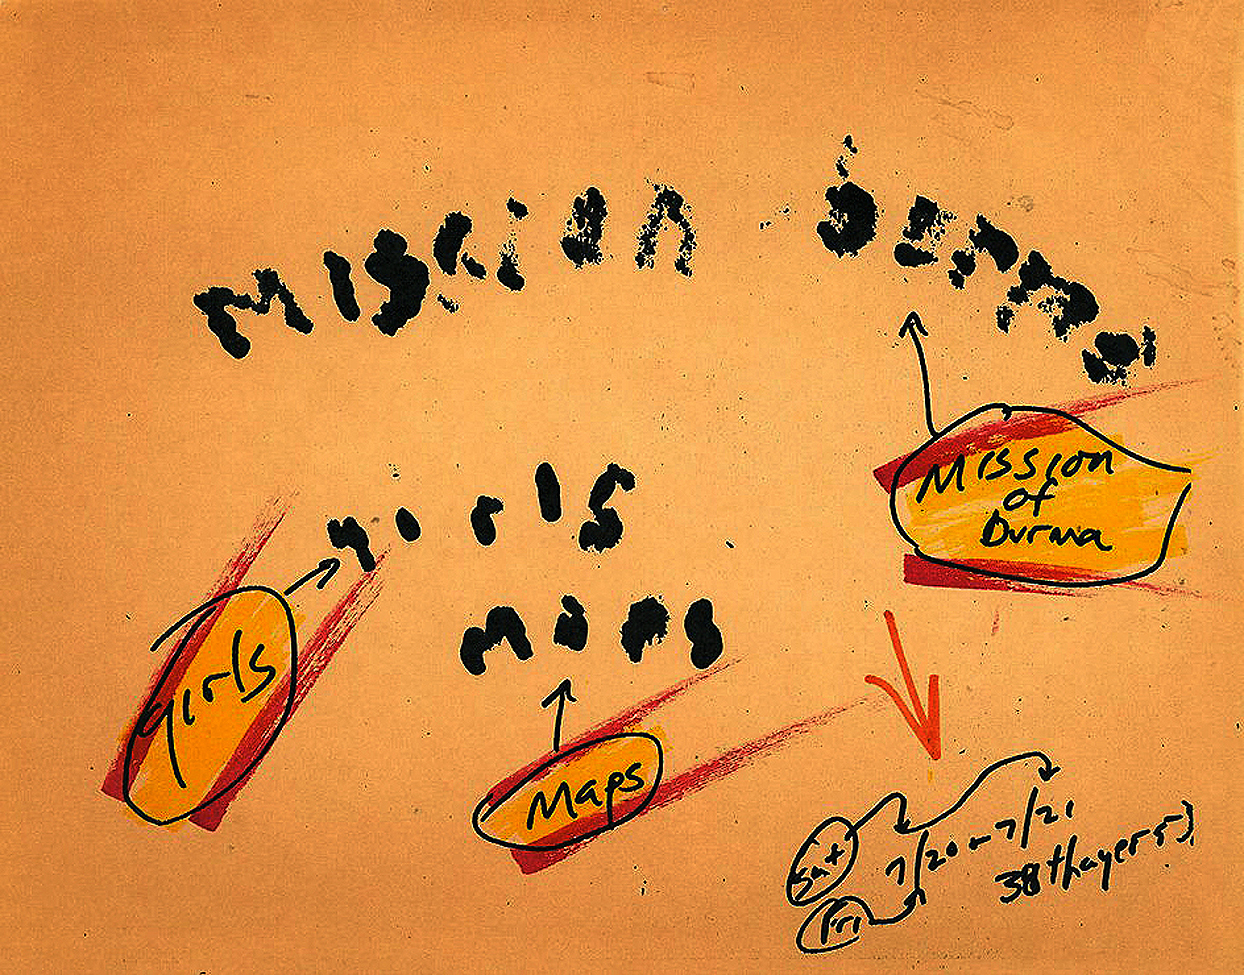 Mission Burma
girls
maps
Mission
of
Burma
girls
Maps
Sat
7/20 & 7/21
Fri
38 thayer st